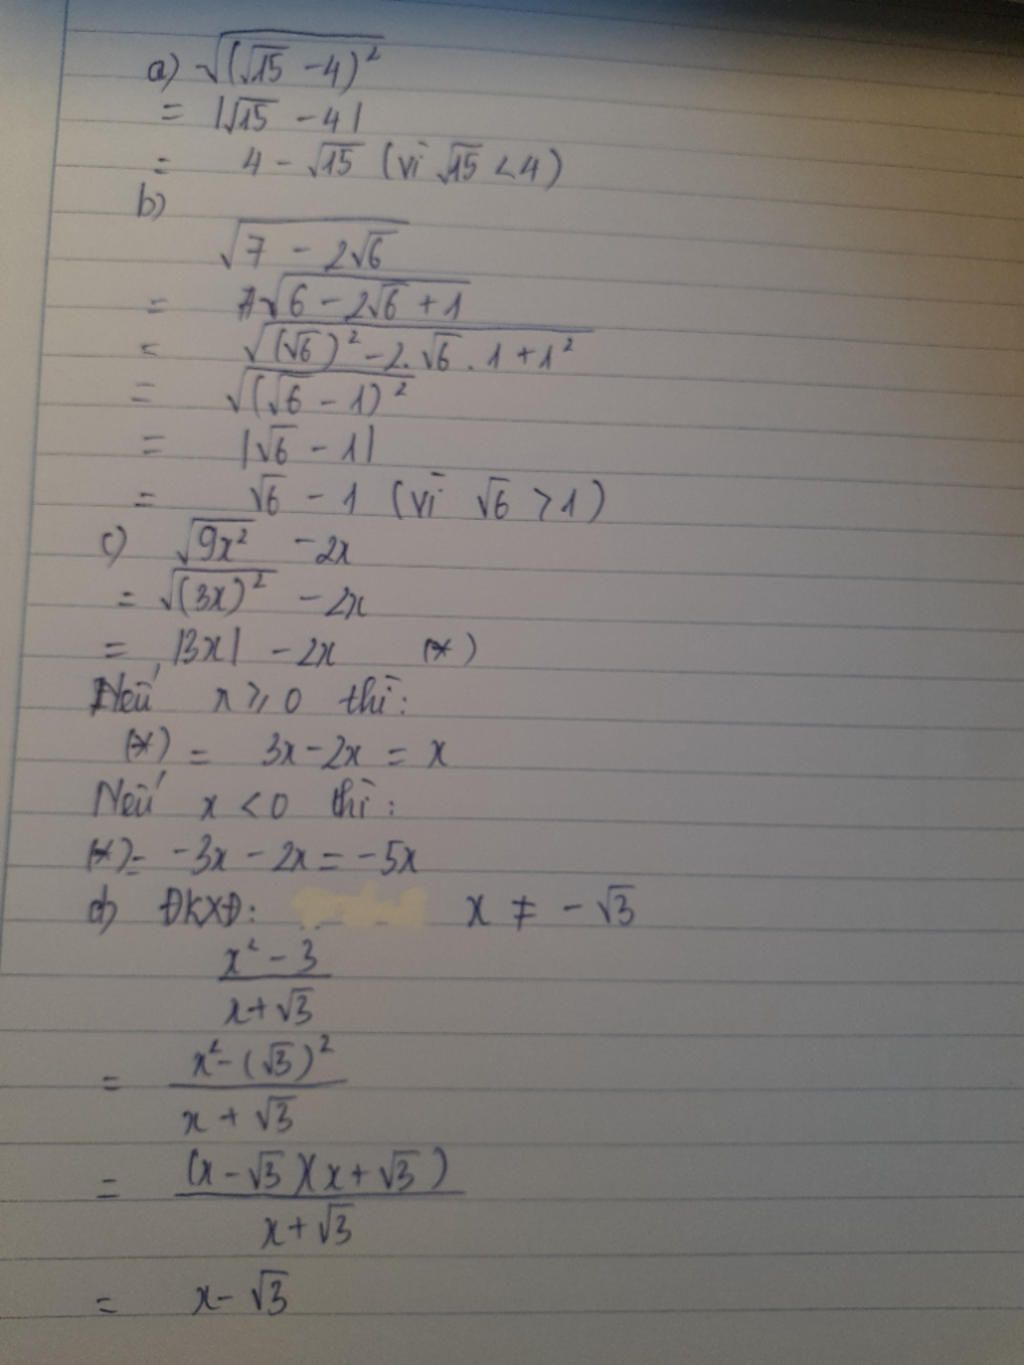 a) √((√15 - 4)²)
= |√15 - 4|
= 4 - √15 (vì √15 < 4)
b)
√(7 - 2√6)
= √(6 - 2√6 + 1)
= √((√6)² - 2.√6 . 1 + 1²)
= √((√6 - 1)²)
= |√6 - 1|
= √6 - 1 (vì √6 > 1)
c) √(9x²) - 2x
= √((3x)²) - 2x
= |3x| - 2x (*)
Nếu x ⩾ 0 thì:
(*) = 3x - 2x = x
Nếu x < 0 thì:
(*) = -3x - 2x = -5x
d) ĐKXĐ: x ≠ -√3
(x² - 3)/(x + √3)
= (x² - (√3)²)/(x + √3)
= ((x - √3)(x + √3))/(x + √3)
= x - √3